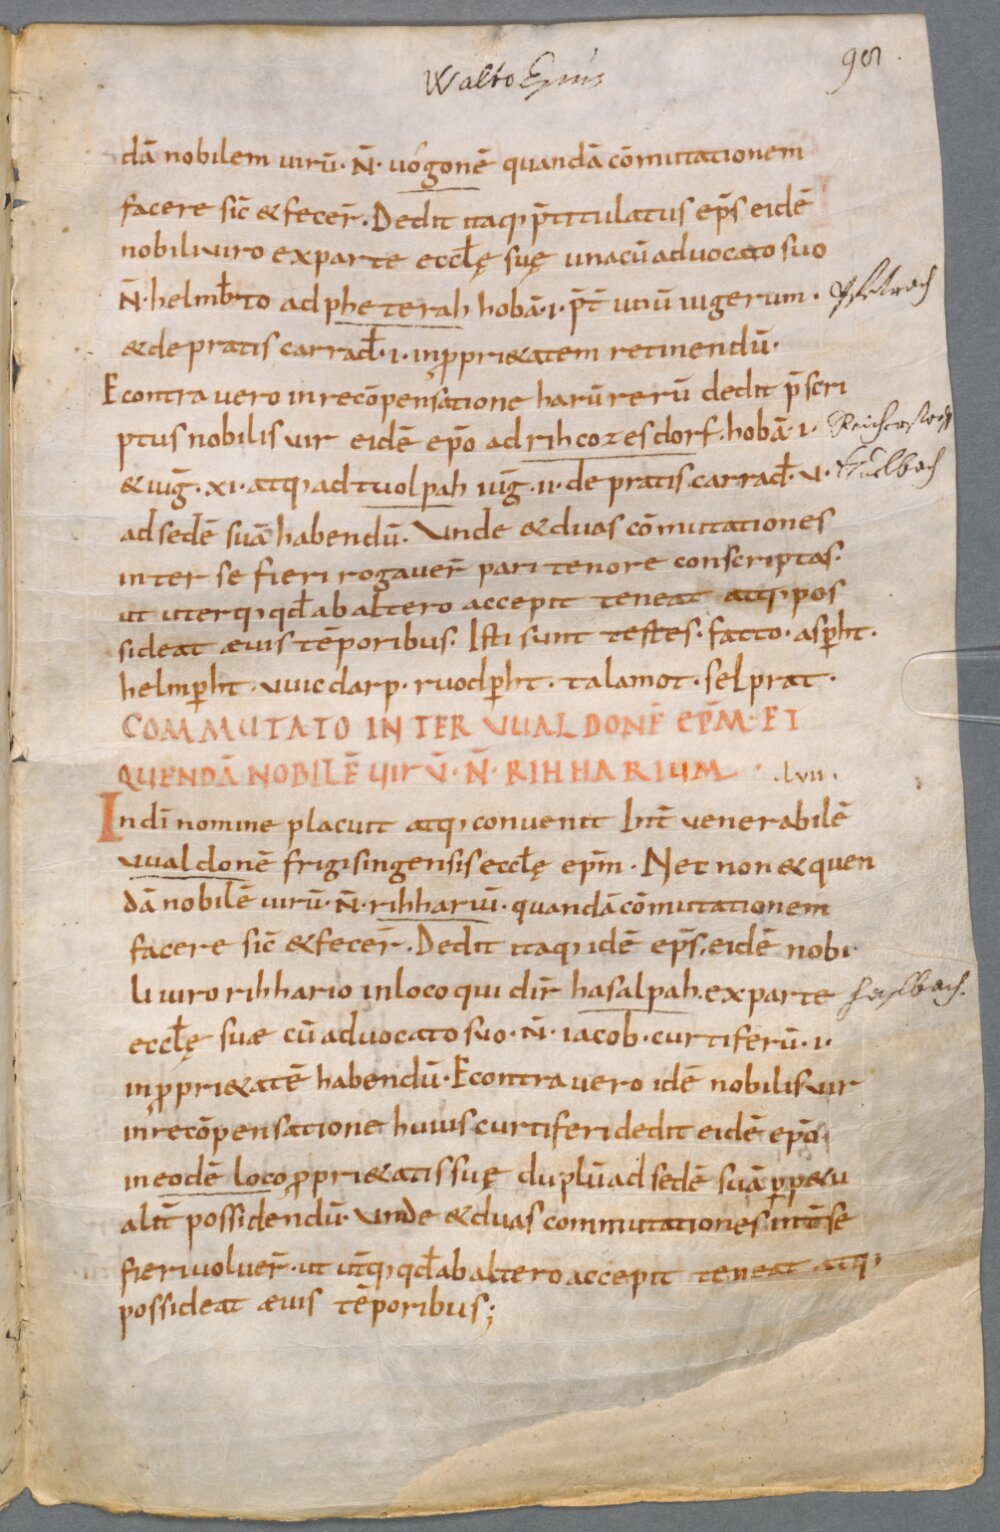 Walto Ep̄us
98.
dā nobilem uirū· N̄· uógonē quandā cōmutationem
facere sic̄ & fecer̄. Dedit itaq; p̄titulatus ep̄s eidē
nobili uiro ex parte eccl̄ę suę una cū aduocato suo
N̄· helmb̄to ad pheterah hobā·i· p̄t̄ unū iugerum· Pfetrach
& de pratis carrad̄·i· in p̱pri&atem retinendū·
E contra uero in recōpensatione harū rerū dedit p̄scri
ptus nobilis uir eidē ep̄o ad rihcozesdorf· hobā·i·
& iūg·xi· atq; ad tuolpah iūg·ii· de pratis carrad̄·v·
ad sedē suā habendū· Vnde & duas cōmutationes
inter se fieri rogauer̄ pari tenore conscriptas·
ut uterq; qd̄ ab altero accepit teneat atq; pos
sideat æuis tēporibus· Isti sunt testes· fatto· asp̱ht·
helmp̱ht· uuicdarp· ruodp̱ht· talamot· selprat·
COMMUTATO INTER VUALDONĒ EP̄M· ET
QUENDĀ NOBILĒ UIRŪ· N̄· RIHHARIUM· .lvii.
In dī nomine placuit atq; conuenit Int̄ uenerabilē
uualdonē frigisingensis eccl̄ę ep̄m· Nec non & quen
dā nobilē uirū· N̄· rihhariū· quandā cōmutationem
facere sic̄ & fecer̄. Dedit itaq; idē ep̄s· eidē nobi
li uiro rihhario in loco qui dir̄ hasalpah· ex parte haslbach.
eccl̄ę suæ cū aduocato suo· N̄· iacob· curtiferū·i·
in p̱pri&atē habendū· E contra uero idē nobilis uir
in recōpensatione huius curtiferi dedit eidē ep̄o
in eodē loco p̱pri&atis suę duplū ad sedē suā p̱p&u
alit̄ possidendū· Vnde & duas commutationes int̄ se
fieri uoluer̄· ut ut̄q; qd̄ ab altero accepit teneat atq;
possideat æuis tēporibus;